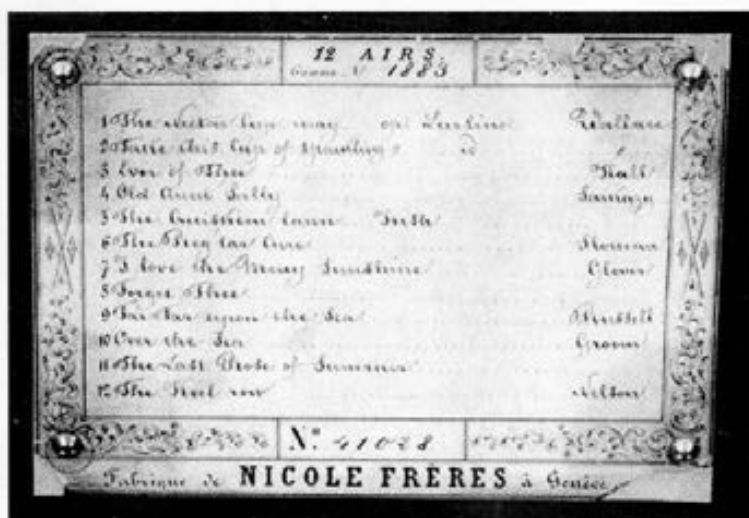 12 AIRS.
Gamme N° 1883
1 The Nectar Cup may op: Lurline Wallace
2 Take this Cup of Sparkling id "
3 Ever of Thee Hall
4 Old Aunt Sally
5 The Cruiskeen lawn Irish
6 The
7 I love the Merry Sunshine Glover
8 Forget Thee
9 Far Far upon the Sea Russell
10 Over the Sea Groom
11 The Last Rose of Summer
12 The Keel row
N° 41028
Fabrique de NICOLE FRÈRES à Genève